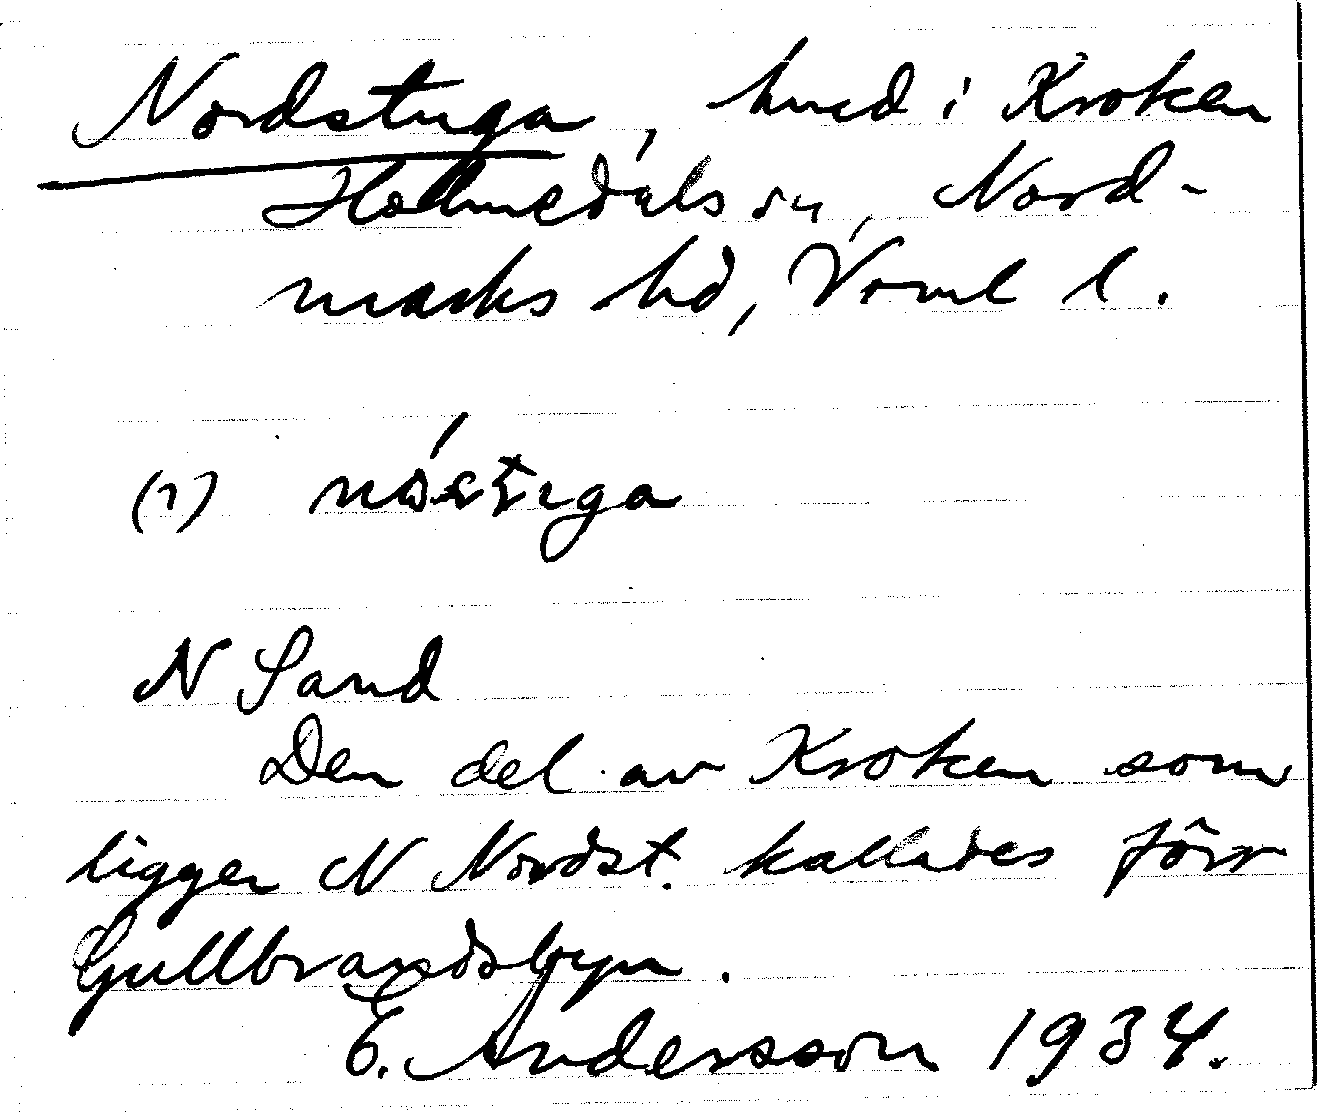 Nordstuga, hmd i Kroken
Holmedals sn, Nord-
marks hd, Värml l.
(1) nó̀stuga
N Sand
Den del av Kroken som
ligger N Nordst. kallades förr
Gullbrandsbyn.
E. Andersson 1934.